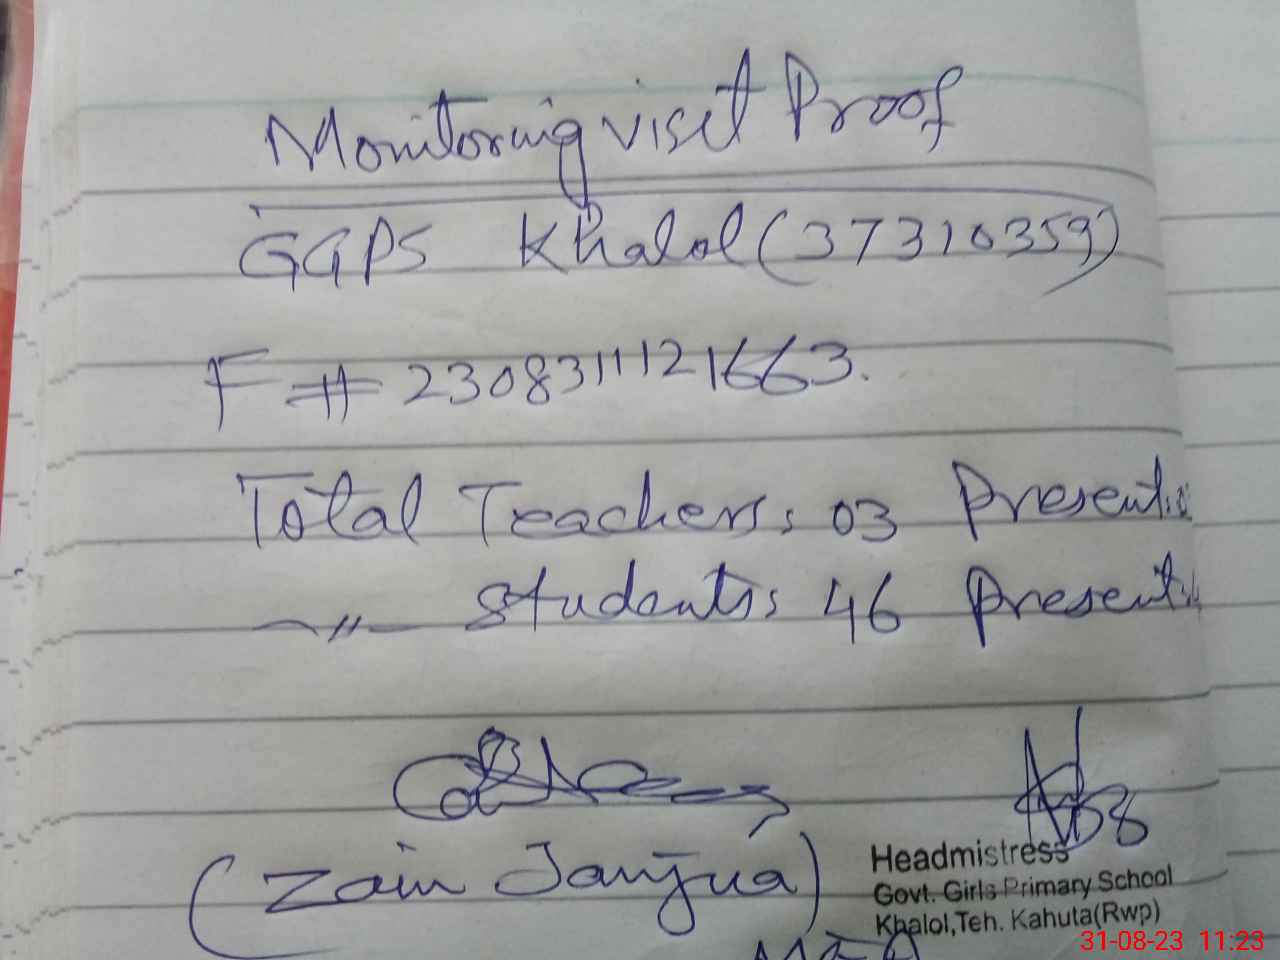 Monitoring visit Proof
GGPS Khalol (37310359)
F # 2308311121663.
Total Teachers: 03 Present:
-〃- Students: 46 Present:
(Zain Janjua)
MEA
Headmistress
Govt. Girls Primary School
Khalol,Teh. Kahuta(Rwp)
31-08-23 11:23